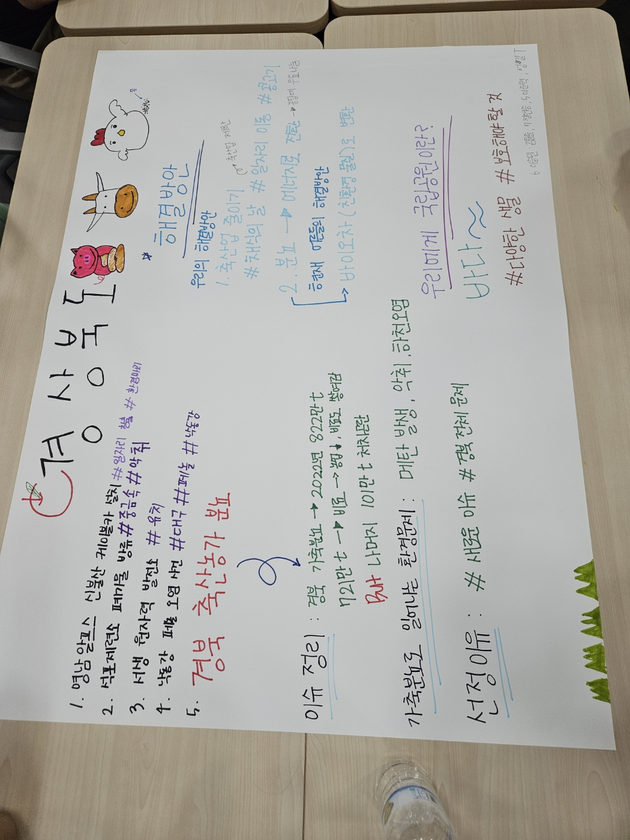 경상북도
1. 영남알프스 신불산 케이블카 설치 #일자리 창출 #환경파괴
2. 석포제련소 폐기물 방류 #중금속 #악취
3. 서생 원자력 발전소 #유치
4. 낙동강 페놀 오염 사건 #대구 #페놀 #낙동강
5. 경북 축산농가 분뇨
이슈 정리 : 경북 가축분뇨 → 2022년 822만t
721만t → 비료 → 농업↓, 비료도 줄어듬
But 나머지 101만t 처치곤란
가축분뇨로 일어나는 환경문제 : 메탄 발생, 악취, 하천오염
선정이유 : # 새로운 이슈 # 경북 전체 문제
해결방안
우리의 해결방안
1. 축산업 줄이기
#채식의 날 #일자리 이동 #콩고기
2. 분뇨 → 에너지로 전환
현재 어른들의 해결방안
→ 바이오차(친환경 물질)로 변환
우리에게 국립공원이란?
바다~
#다양한 생물 #보호해야할 것